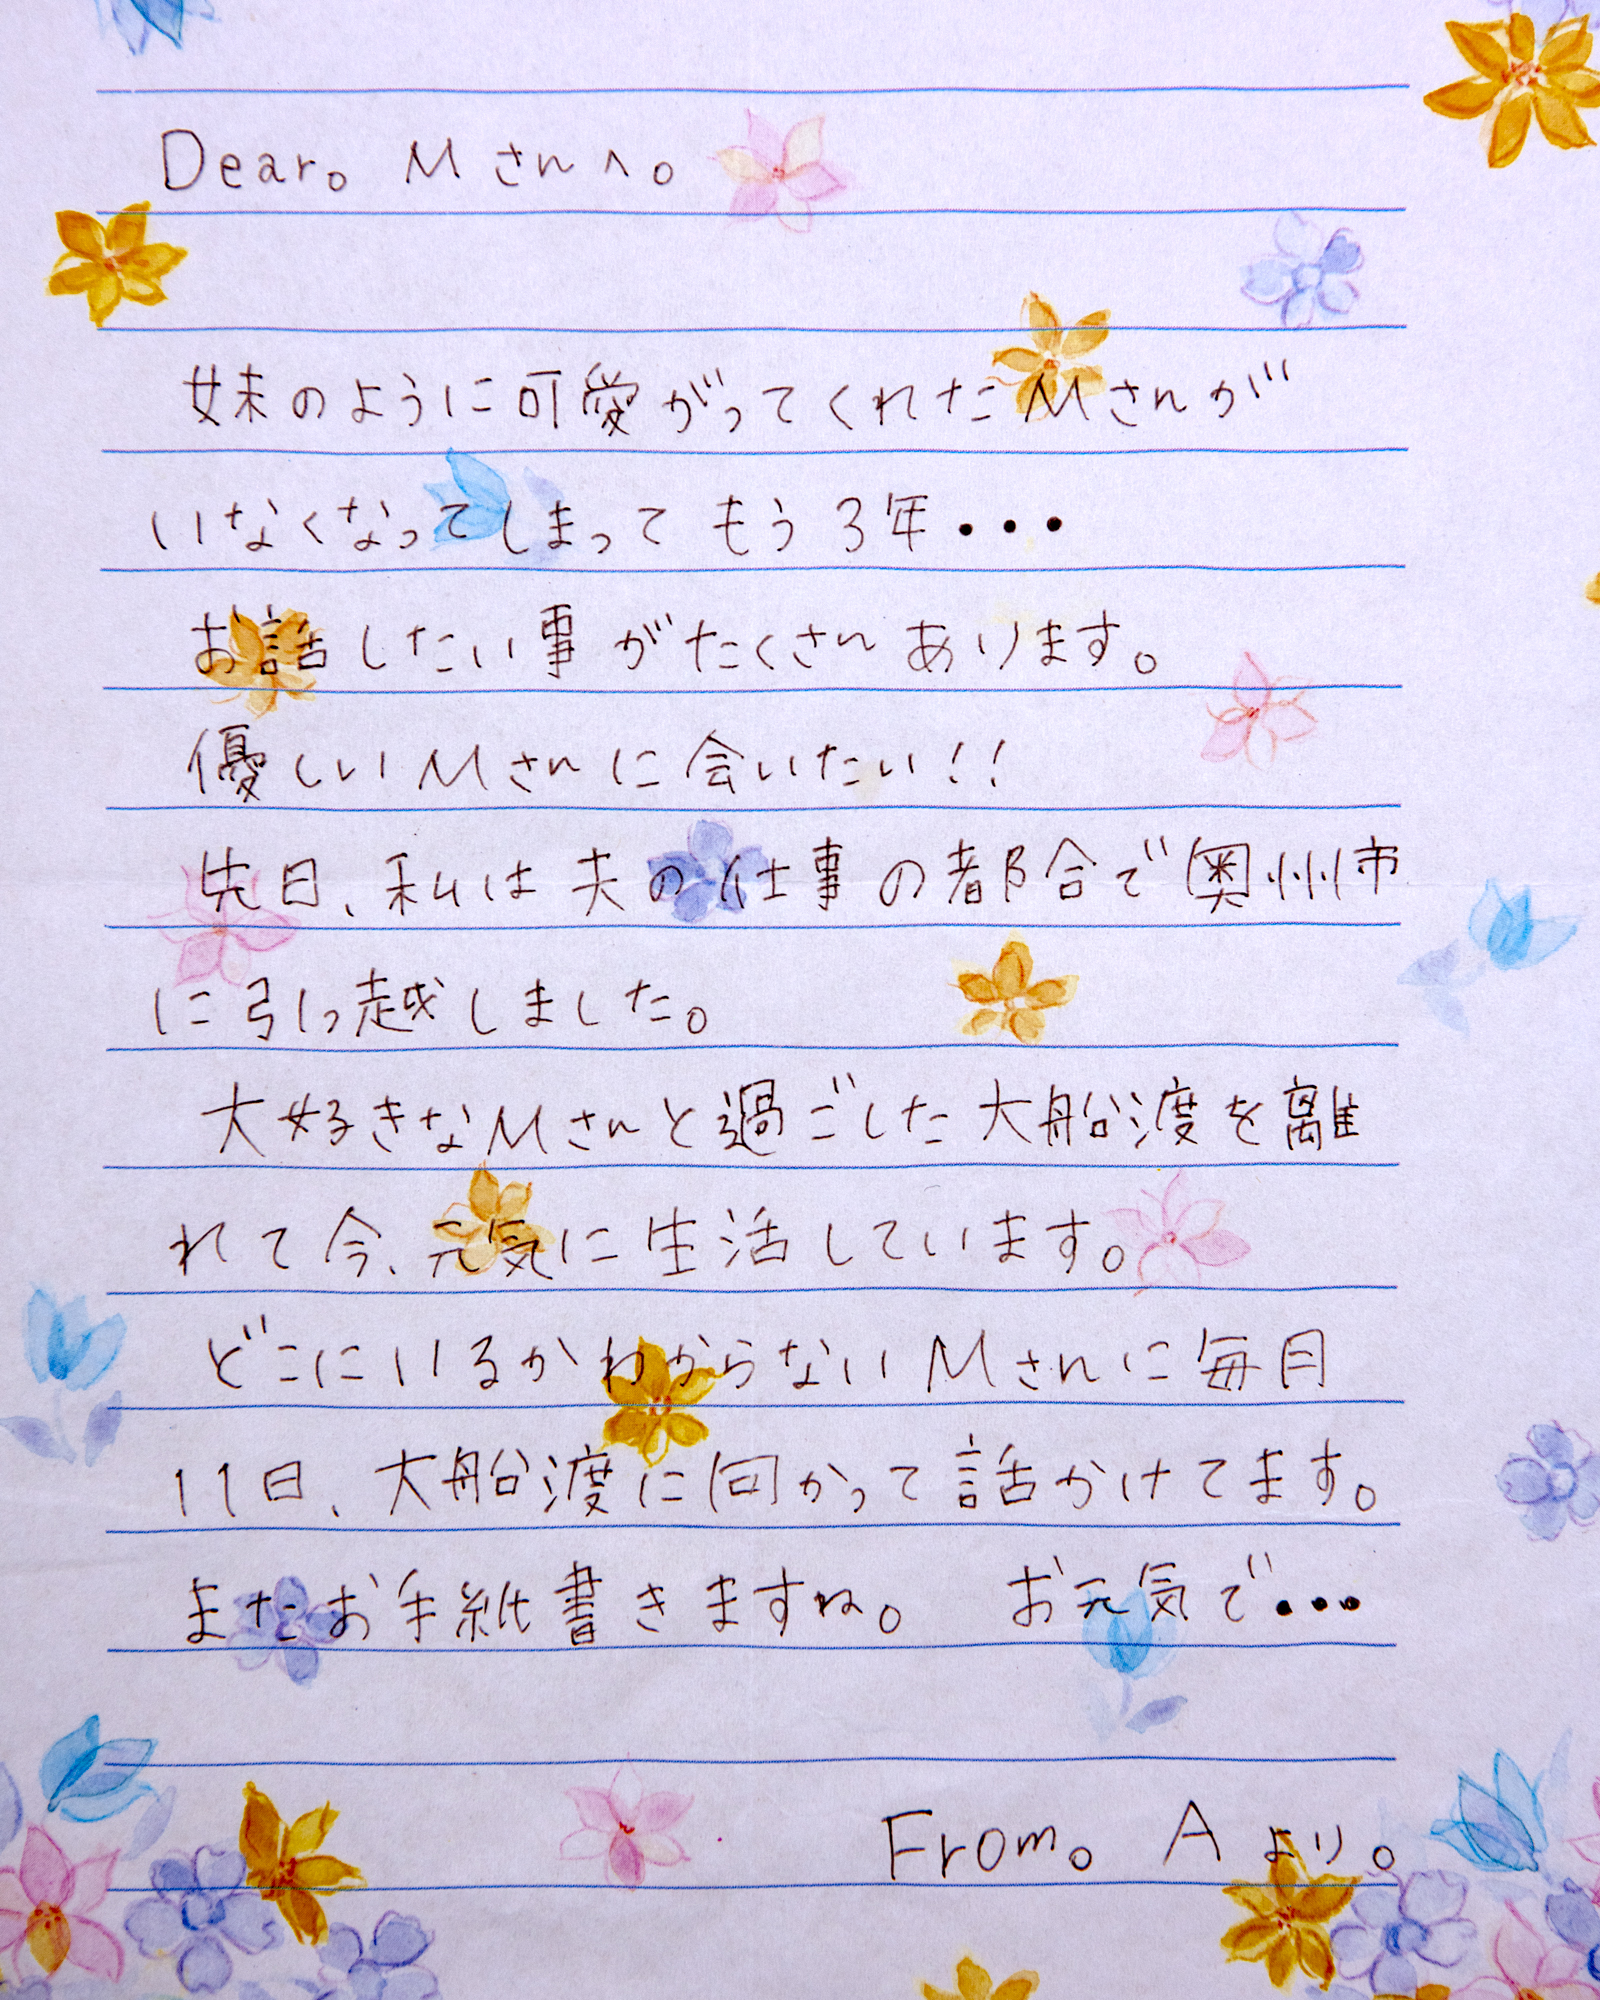 Dear。 Mさんへ。
妹のように可愛がってくれたMさんが
いなくなってしまって もう3年・・・
お話したい事がたくさん あります。
優しいMさんに会いたい!!
先日、私は夫の仕事の都合で奥州市
に引っ越しました。
大好きなMさんと過ごした大船渡を離
れて今、元気に生活しています。
どこにいるかわからないMさんに毎月
11日、大船渡に向かって話かけてます。
またお手紙書きますね。 お元気で・・・
From。 Aより。